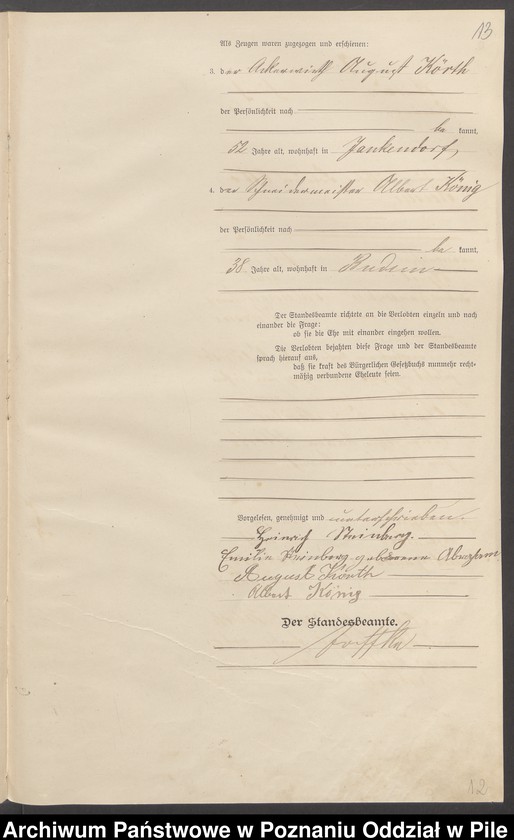 13
Als Zeugen waren zugezogen und erschienen:
3. der Ackerwirth August Körth
der Persönlichkeit nach
be kannt,
52 Jahre alt, wohnhaft in Jankendorf,
4. der Schneidermeister Albert König
der Persönlichkeit nach
be kannt,
38 Jahre alt, wohnhaft in Budsin
Der Standesbeamte richtete an die Verlobten einzeln und nach
einander die Frage:
ob sie die Ehe mit einander eingehen wollen.
Die Verlobten bejahten diese Frage und der Standesbeamte
sprach hierauf aus,
daß sie kraft des Bürgerlichen Gesetzbuchs nunmehr recht-
mäßig verbundene Eheleute seien.
Vorgelesen, genehmigt und unterschrieben.
Heinrich Steinberg.
Emilie Steinberg geborene
August Körth
Albert König
Der Standesbeamte.
12
Archiwum Państwowe w Poznaniu Oddział w Pile